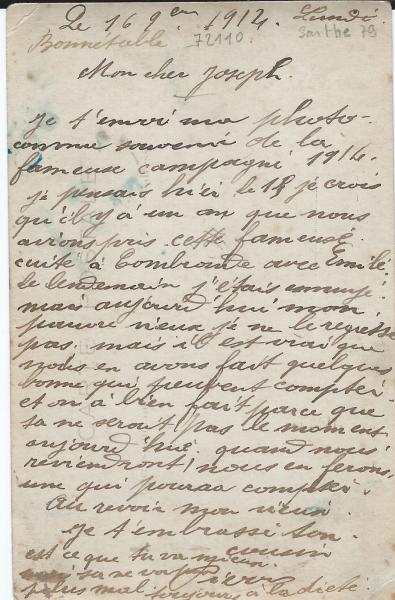 Le 16 9em 1914. Lundi.
Bonnetable 72110. Sarthe 79
Mon cher Joseph.
Je t'envoi ma photo-
comme souvenir de la
fameuse campagne 1914.
je pensais hier le 15 je crois
qu'il y a un an que nous
avions pris cette fameuse
cuite à avec Emile
le lendemain j'étais
mais aujourd'hui mon
pauvre vieux je ne le regrette
pas. mais il est vrai que
nous en avons fait quelques
bonne qui peuvent compter.
et on a bien fait parce que
sa ne serait pas le moment
aujourd'hui. quand nous
reviendront nous en ferons,
une qui pourra compter.
Au revoir mon vieux.
Je t'embrasse ton
cousin
est ce que tu va mieux
sa ne va pas
plus mal toujours à la diète.